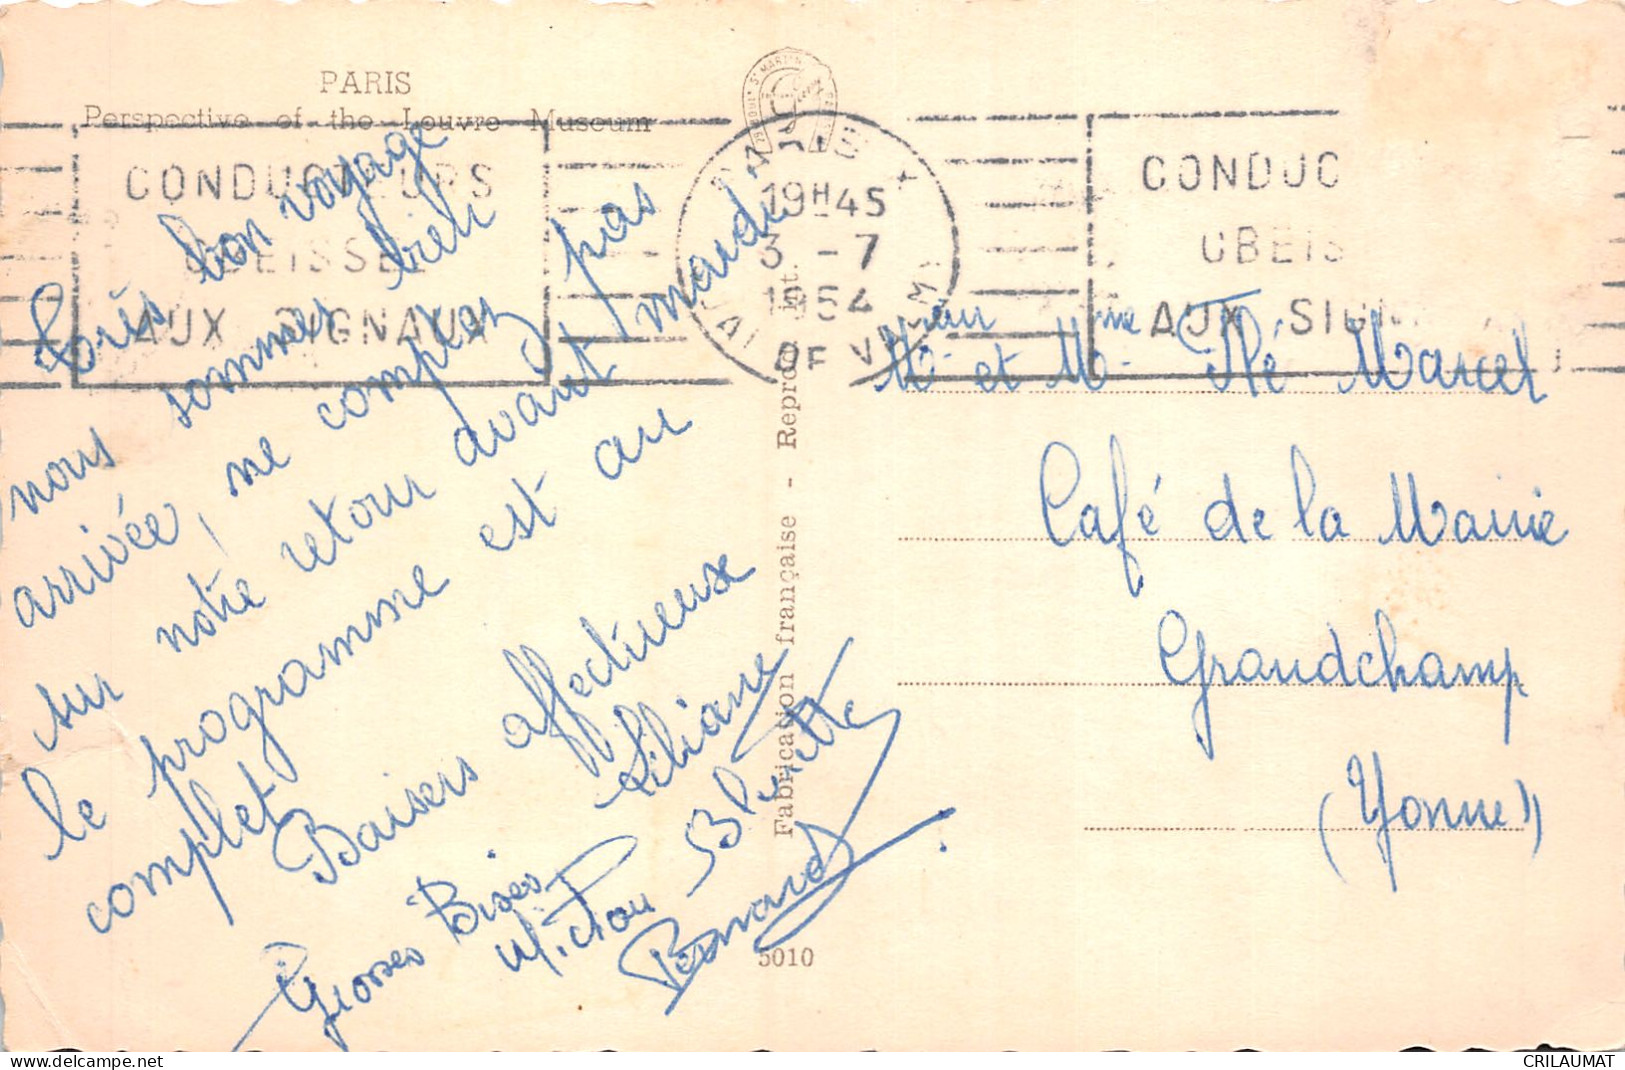 PARIS
Perspective of the Louvre Museum
CONDUCTEURS
OBEISSEZ
AUX SIGNAUX
PARIS X
19H45
3 - 7
1954
CONDUC
OBEIS
AUX SIGN
Très bon voyage
nous sommes bien
arrivée, ne comptez pas
sur notre retour avant mardi
le programme est au
complet
Baisers affectueux
Liliane
Grosses Bises
Bernard
Fabrication française - Reprod. Int.
5010
Mr et Mme Marcel
Café de la Mairie
Grandchamp
(Yonne)
delcampe.net
CRILAUMAT